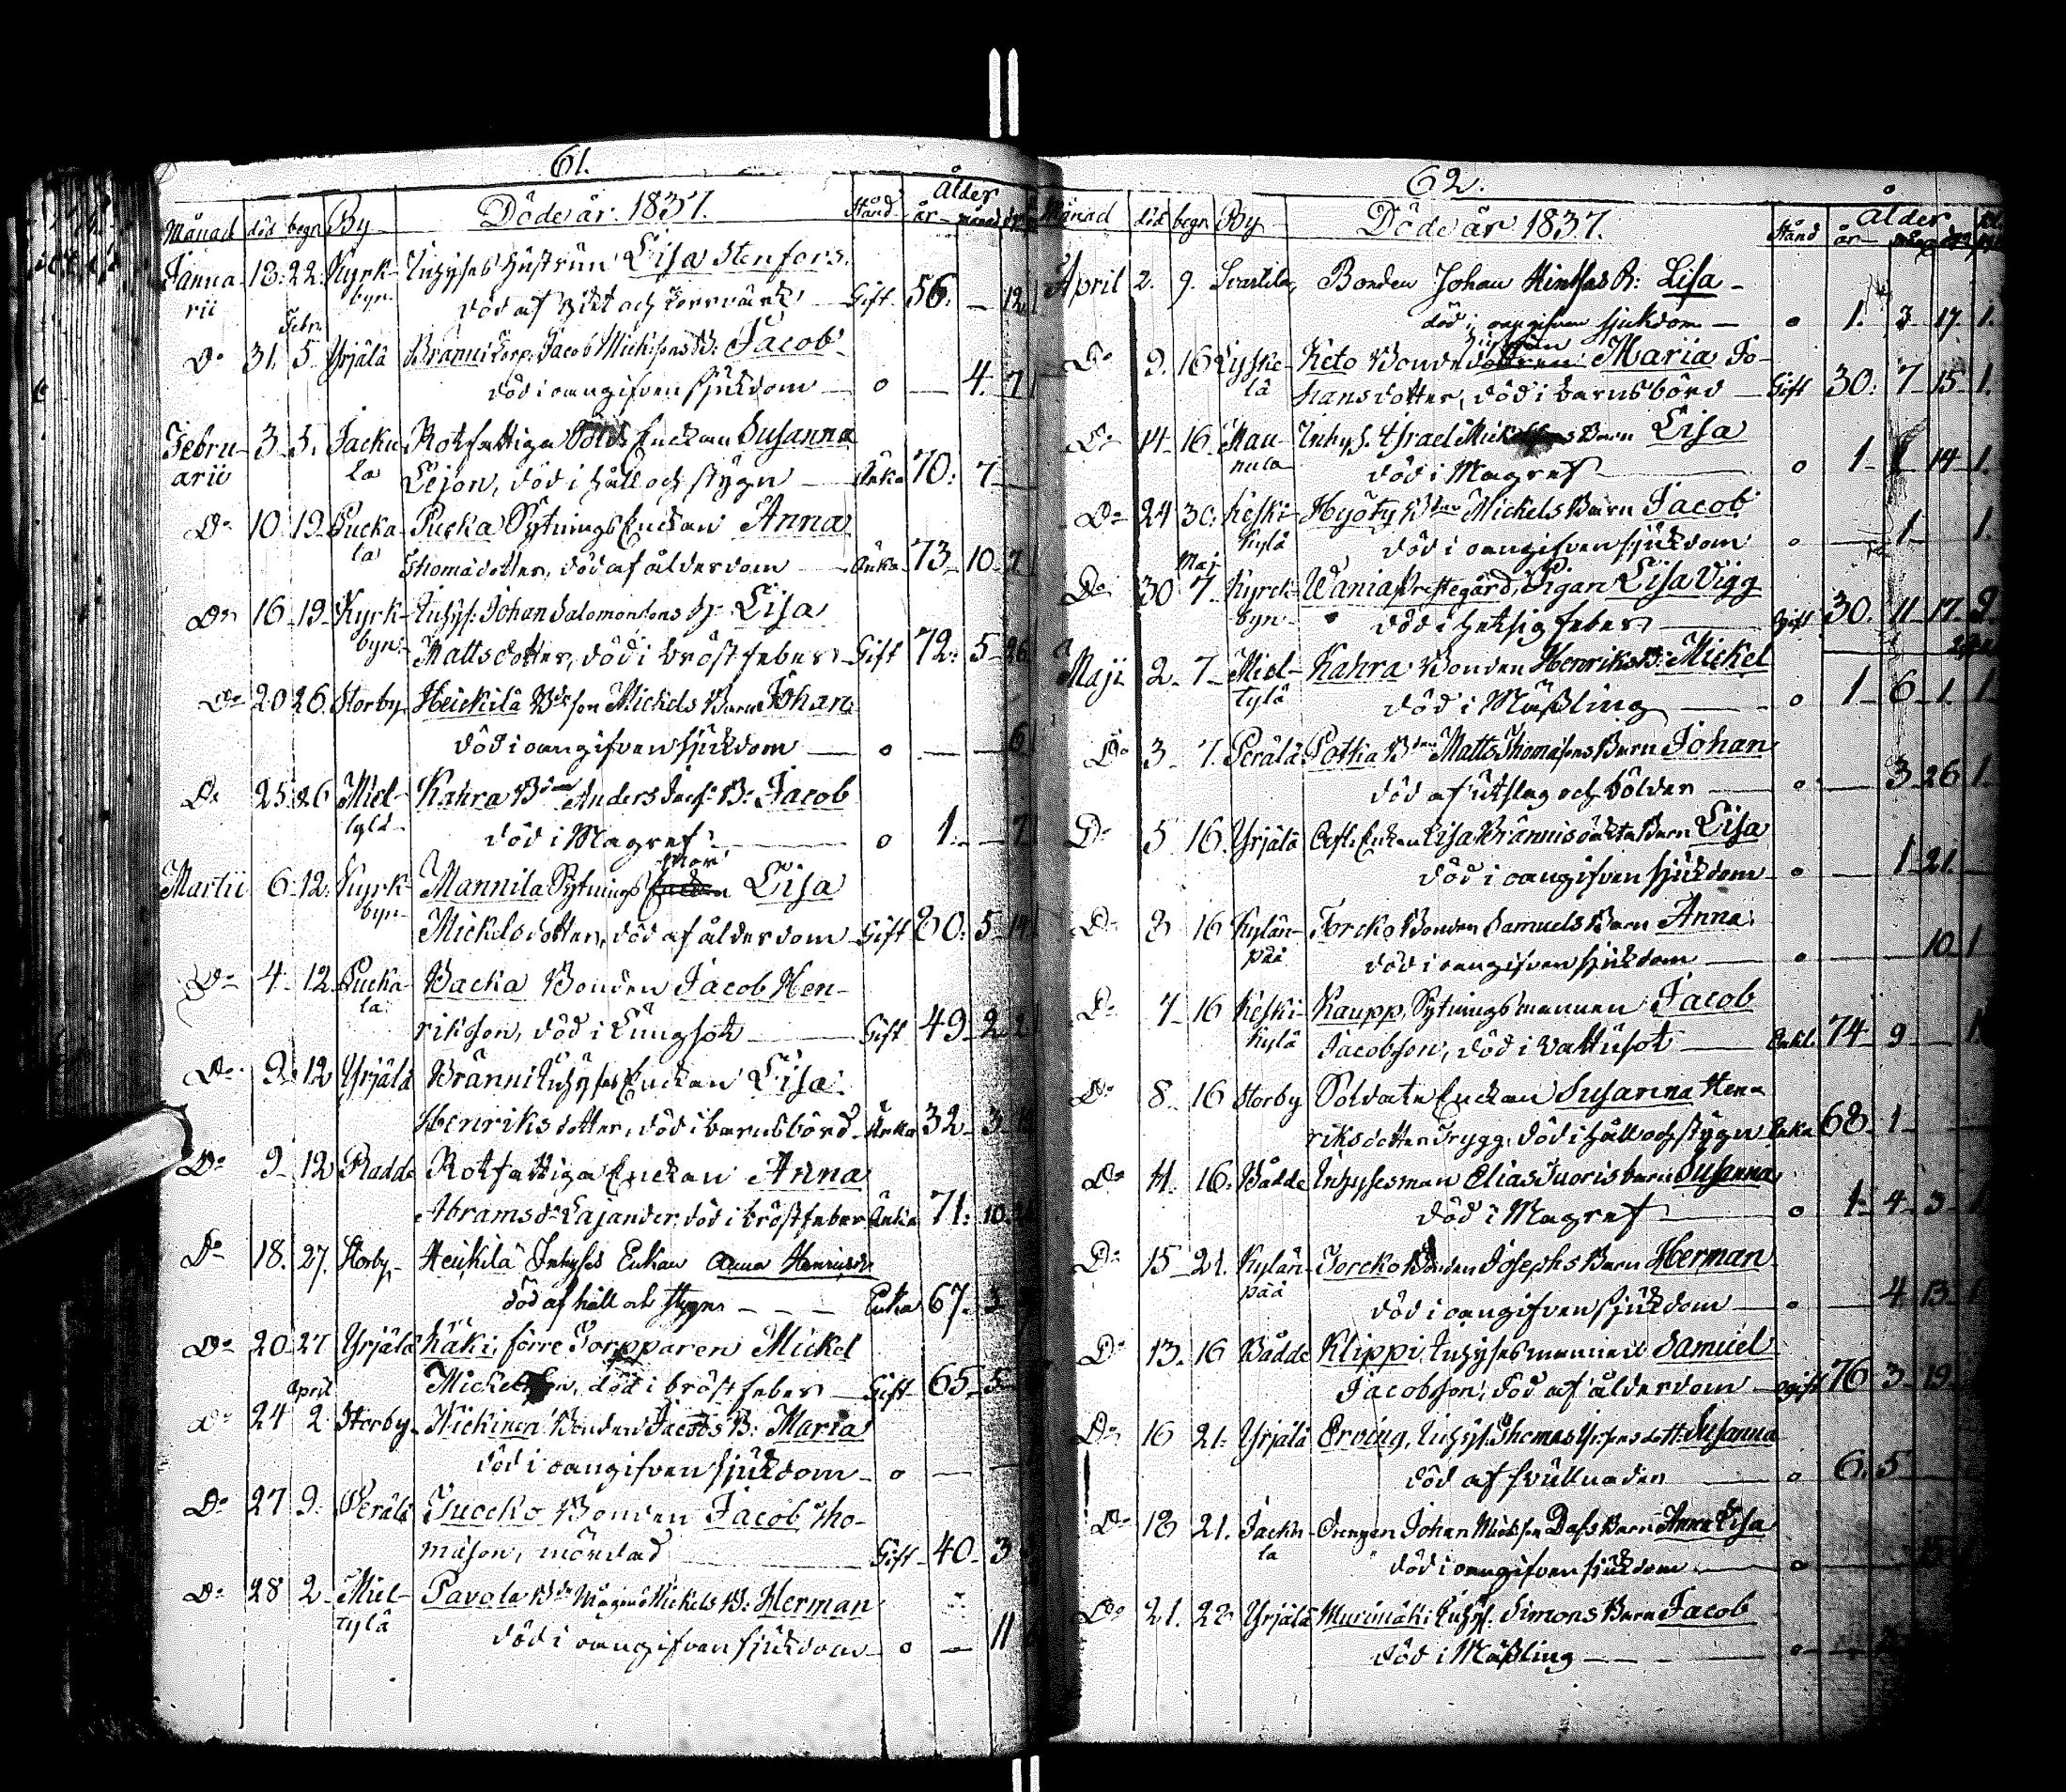 61.
Månad död begr. By Döde år 1837. Stånd Ålder år månad
Janua- 18. 22. Kyrk- Inhyses Hustrun Lisa Stenfors.
rii byn död af och Gift 56. — 12
Febr.
Do 31. 5. Yrjälä Bränni Torp. Jacob Mickelsons B: Jacob
död i oangifven sjukdom — o — 4. 7
Febru- 3. 5. Jacku- Rotfattiga Enckan Susanna
arii la Lejon, död i håll och stygn — Enka 70. 7 —
Do 10. 19. Pucka- Pucka Sytnings Enckan Anna
la Thomædotter, död af ålderdom — Enka 73. 10. 7
Do 16. 19. Kyrk- Inhys. Johan Salomonsons H. Lisa
byn. Mattsdotter, död i bröstfeber — Gift 72. 5. 26
Do 20 26. Storby Heickilä Mickels Barn Johan
död i oangifven sjukdom — o — — 6
Do 25. 26 Miel- Kahra Anders B: Jacob
tylä död i Magref — o 1. — 7
mor
Martii 6. 12. Kyrk- Mannila Sytnings Enckan Lisa
byn Mickelsdotter, död af ålderdom Gift 80. 5.
Do 4. 12 Pucka- Backa Bonden Jacob Hen-
la rikson, död i Lungsot — Gift 49. 2. 2
Do 9. 12 Yrjälä Bränni Inhyses Enckan Lisa
Henriksdotter, död i barnsbörd. Enka 32. 3.
Do 9. 12 Radde Rotfattiga Enckan Anna
Abrams dr Lajander, död i bröstfeber Enka 71. 10.
Do 18. 27. Storby Heikilä Inhyses Enkan Anna Henriksdr
död af håll och stygn — — — Enka 67.
Do 20 27 Yrjälä Käki, förre Torpparen Mickel
död i bröstfeber — Gift 65. 5
April
Do 24 2 Storby Bonden Jacobs B: Maria
död i oangifven sjukdom — o —
Do 27 9. Perälä Juocko Bonden Jacob Tho-
mason, mördad — Gift 40. 3
Do 28 2 Miel- Pavola Mickels B: Herman
tylä död i oangifven sjukdom — o — 11
62.
Månad död begr. By Döde år 1837. Stånd Ålder år
April 2. 9. Svartila, Bonden Johan B: Lisa —
död i oangifven sjukdom — o 1. 3 17. 1.
hustrun
Do 9. 16 Lyske- Keto Bondedottren Maria Jo-
lä hansdotter, död i barnsbörd — Gift 30. 7 15 1.
Do 14. 16. Hau- Inhys. Israel Barn Lisa
nula död i Magref — o 1. 14 1.
Do 24 30. Keski- Hyöty Mickels Barn Jacob
kylä död i oangifven sjukdom o — 1 — 1.
Maj
Do 30 7. Kyrck- Wania Prestegård, Pigan Lisa Vigg
byn död i hetsig feber — 30. 11. 17. 9
Maji 2. 7. Miel- Kahra Bonden Henriks B: Mickel
tylä död i Mäßling — o 1. 6. 1. 1
Do 3. 7. Perälä Pottia Matts Thomæsons Barn Johan
död af utslag och bölder — o — 3 26 1.
Do 5 16. Yrjälä Enckan Lisa Brännis oäkta Barn Lisa
död i oangifven sjukdom — o — 1 21. —
Do 3 16 Kylän- Torcko Bonden Samuels Barn Anna
pää död i oangifven sjukdom — o — — 10. 1
Do 7. 16 Keski- Kaupp. Sytningsmannen Jacob
kylä Jacobson, död i vattusot — Enkl. 74. 9 — 1.
Do 8. 16 Storby Soldats Enckan Susanna Hen-
riksdotter Trygg, död i håll och stygn Enka 68. 1. —
Do 11. 16. Bådde Inhysesman Elias Juoris barn Susanna
död i Magref — o 1. 4. 3.
Do 15 21. Kylän- Torcko Bonden Josephs Barn Herman
pää död i oangifven sjukdom — o — 4. 13. 1
Do 13. 16 Bådde Klippi, Inhysesmannen Samuel
Jacobson, död af ålderdom — ogift 76 3. 19.
Do 16 21. Yrjälä Erving, Inhys. Thomas dott. Susanna
död af svullnader — o 6. 5
Do 18 21. Jacku- Drengen Johan Mickelson Dafs Barn Anna Lisa
la död i oangifven sjukdom — o —
Do 21. 28 Yrjälä Murimäki Inhys. Simons Barn Jacob
död i Mäßling — — — o —